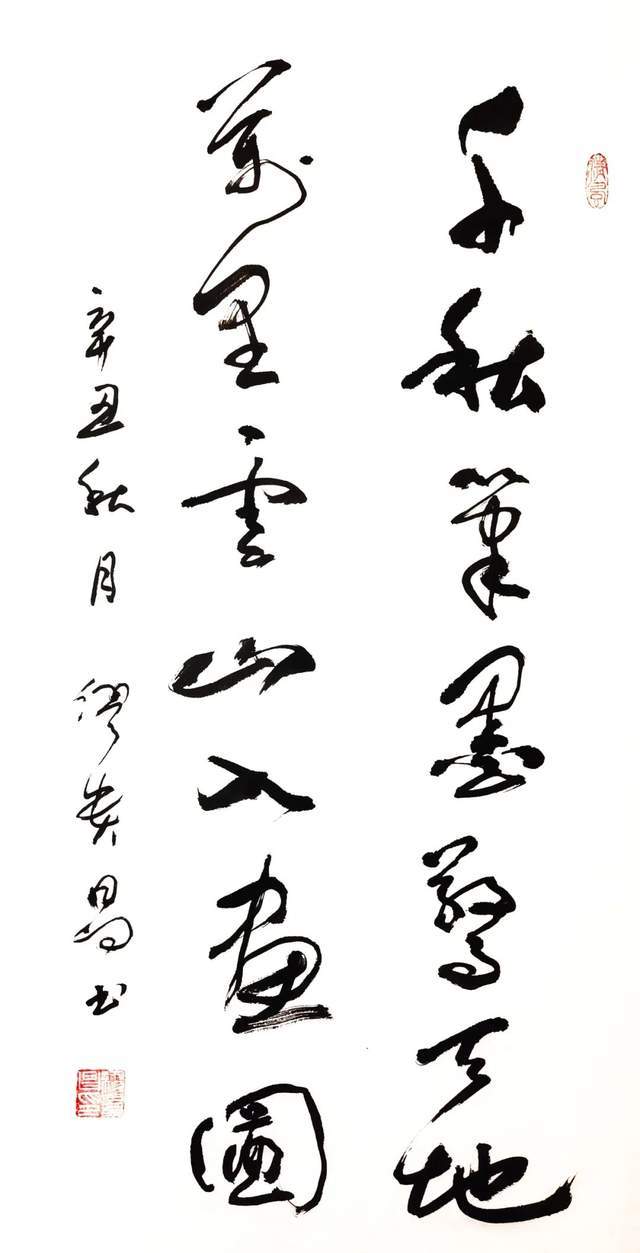 千秋筆墨驚天地
萬里雲山入畫圖
辛丑秋月 貴昌书